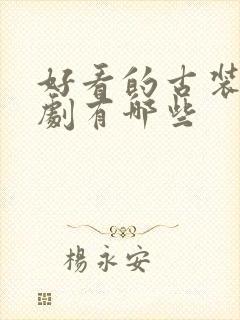 好看的古装
劇有哪些
楊永安